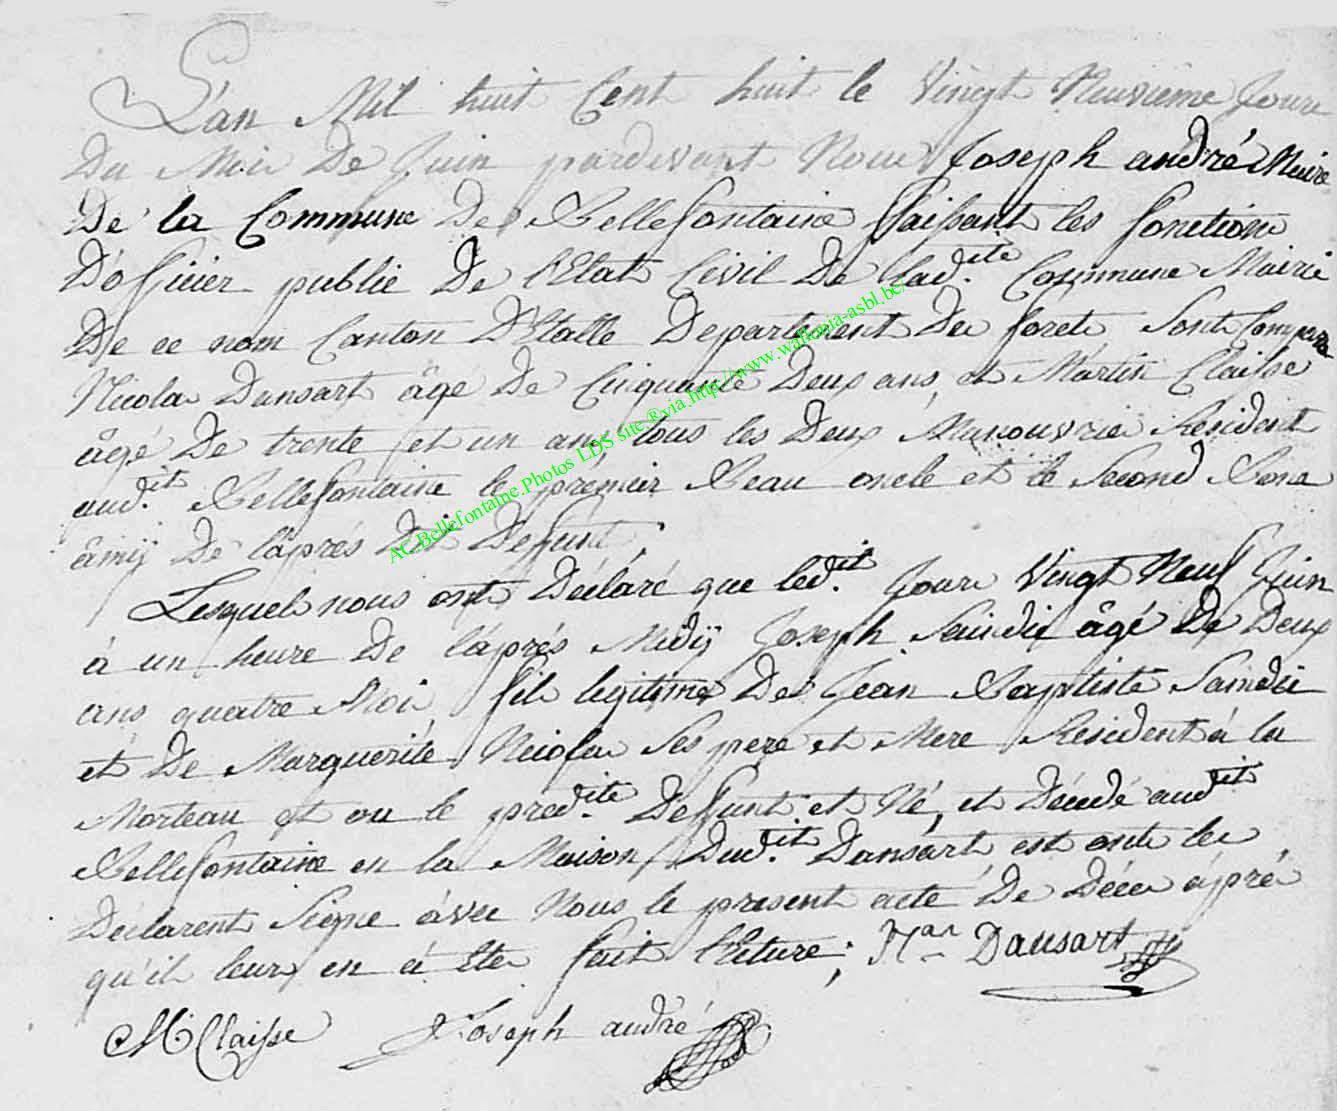 L'an Mil huit Cent huit le Vingt Neuvieme Jour
Du Moi De Juin pardevant Nous Joseph andré Maire
De la Commune De Bellefontaine faissant les fonction
D'officier public De l'Etat Civil De lad.ite Commune Mairie
De ce nom Canton D'Etalle Departement Du foret Sont Comparu
Nicola Dansart âge De Cinquante Deux ans, et Martin Claisse
âgé De trente et un ans, tous les Deux Manouvrie Resident
aud.it Bellefontaine le premier Beau oncle et le Second Bone
âmij De l'aprés Dit Defunt,
Lesquel nous ont Déclaré que led.it Jour Vingt Neuf Juin
à un heure De l'aprés Midij Joseph Saindie âgé De Deux
ans quatre Moi, fil legitime De Jean Baptiste Saindie
et De Marguerite Nicola Ses pere et Mere Resident à la
Morteau et ou le pred.ite Deffunt et Né, et Décédé aud.it
Bellefontaine en la Maison Dud.it Dansart est ont les
Déclarent Signe àvec Nous le present acte De Décè àpré
qu'il leur en à Ete fait l'Eture; Nlas Dansart
M Claisse Joseph andré
AC.Bellefontaine.Photos LDS site ®via http://www.wallonia-asbl.be/